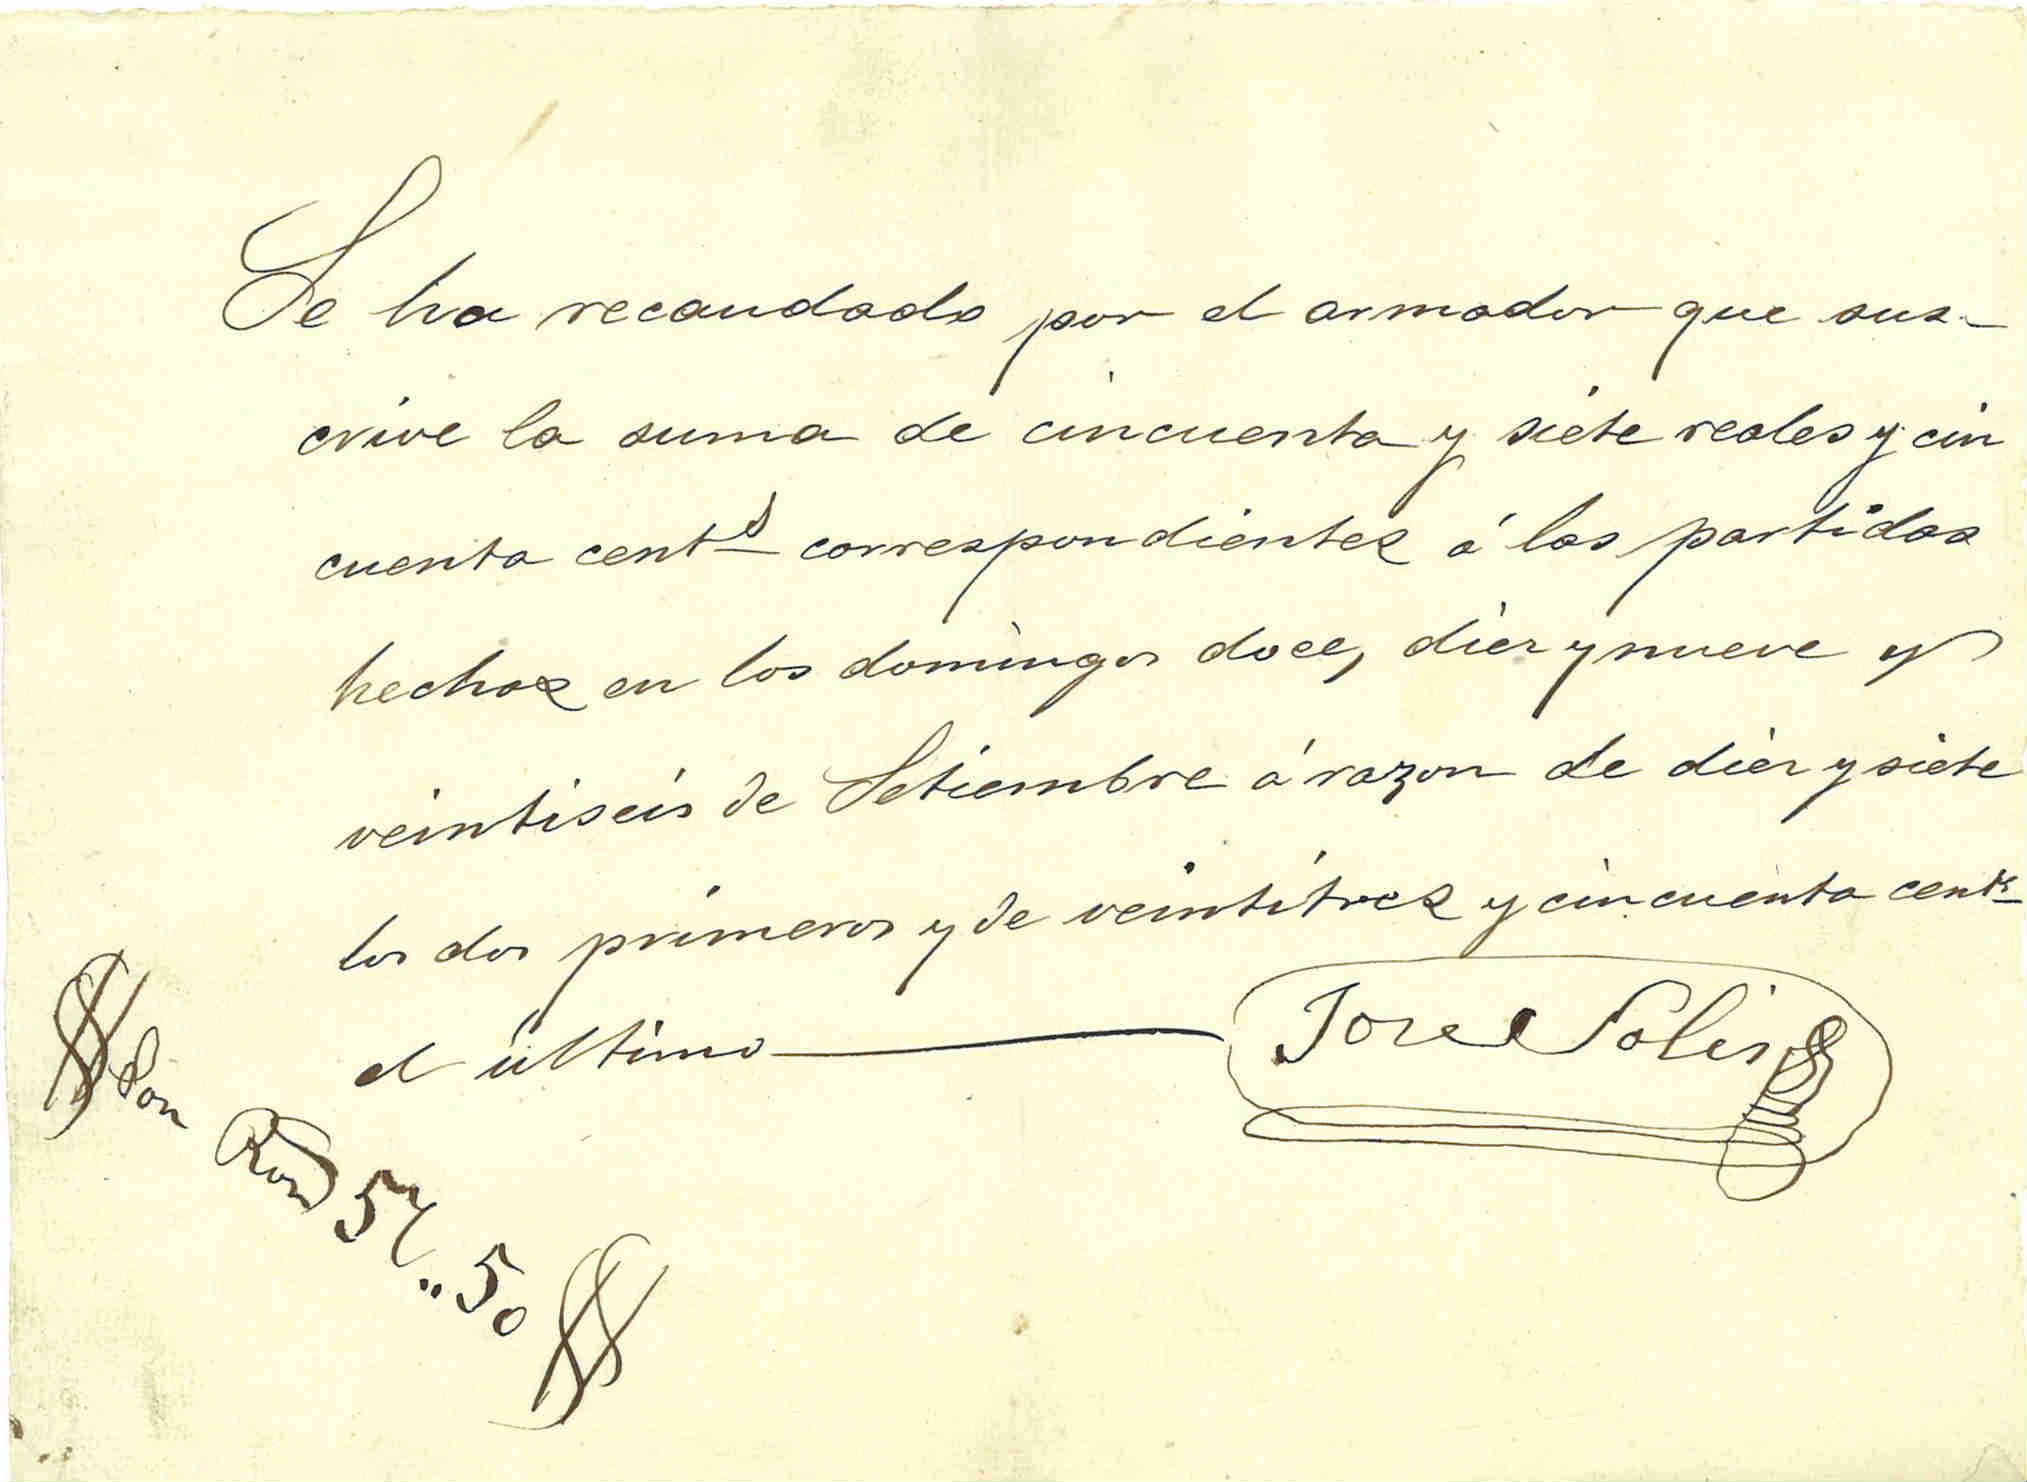 Se ha recaudado por el armador que sus-
crive la suma de cincuenta y siete reales y cin
cuenta cent.s correspondientes á las partidas
hechas en los domingos doce, diez y nueve y
veintiseis de Setiembre á razon de diez y siete
los dos primeros y de veintitres y cincuenta cent.s
el último
Jose Solis
Son Rvon 57,,50